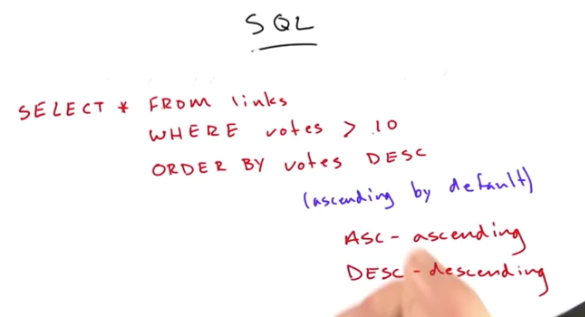 SQL
SELECT * FROM links
WHERE votes > 10
ORDER BY votes DESC
(ascending by default)
ASC - ascending
DESC - descending